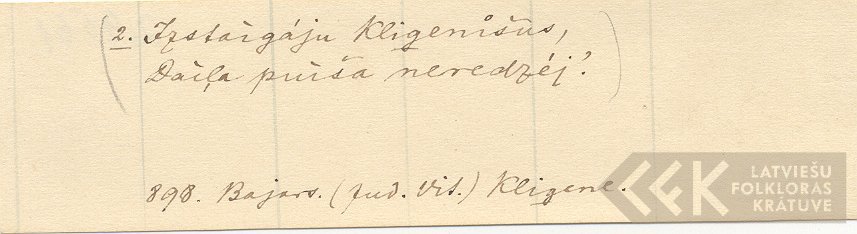 (2. Izstaigāju Kligenišus,
Daiļa puiša neredzēj'.)
898. Bajars. (Jud. Vit.) Kligene.
LATVIEŠU
FOLKLORAS
KRĀTUVE